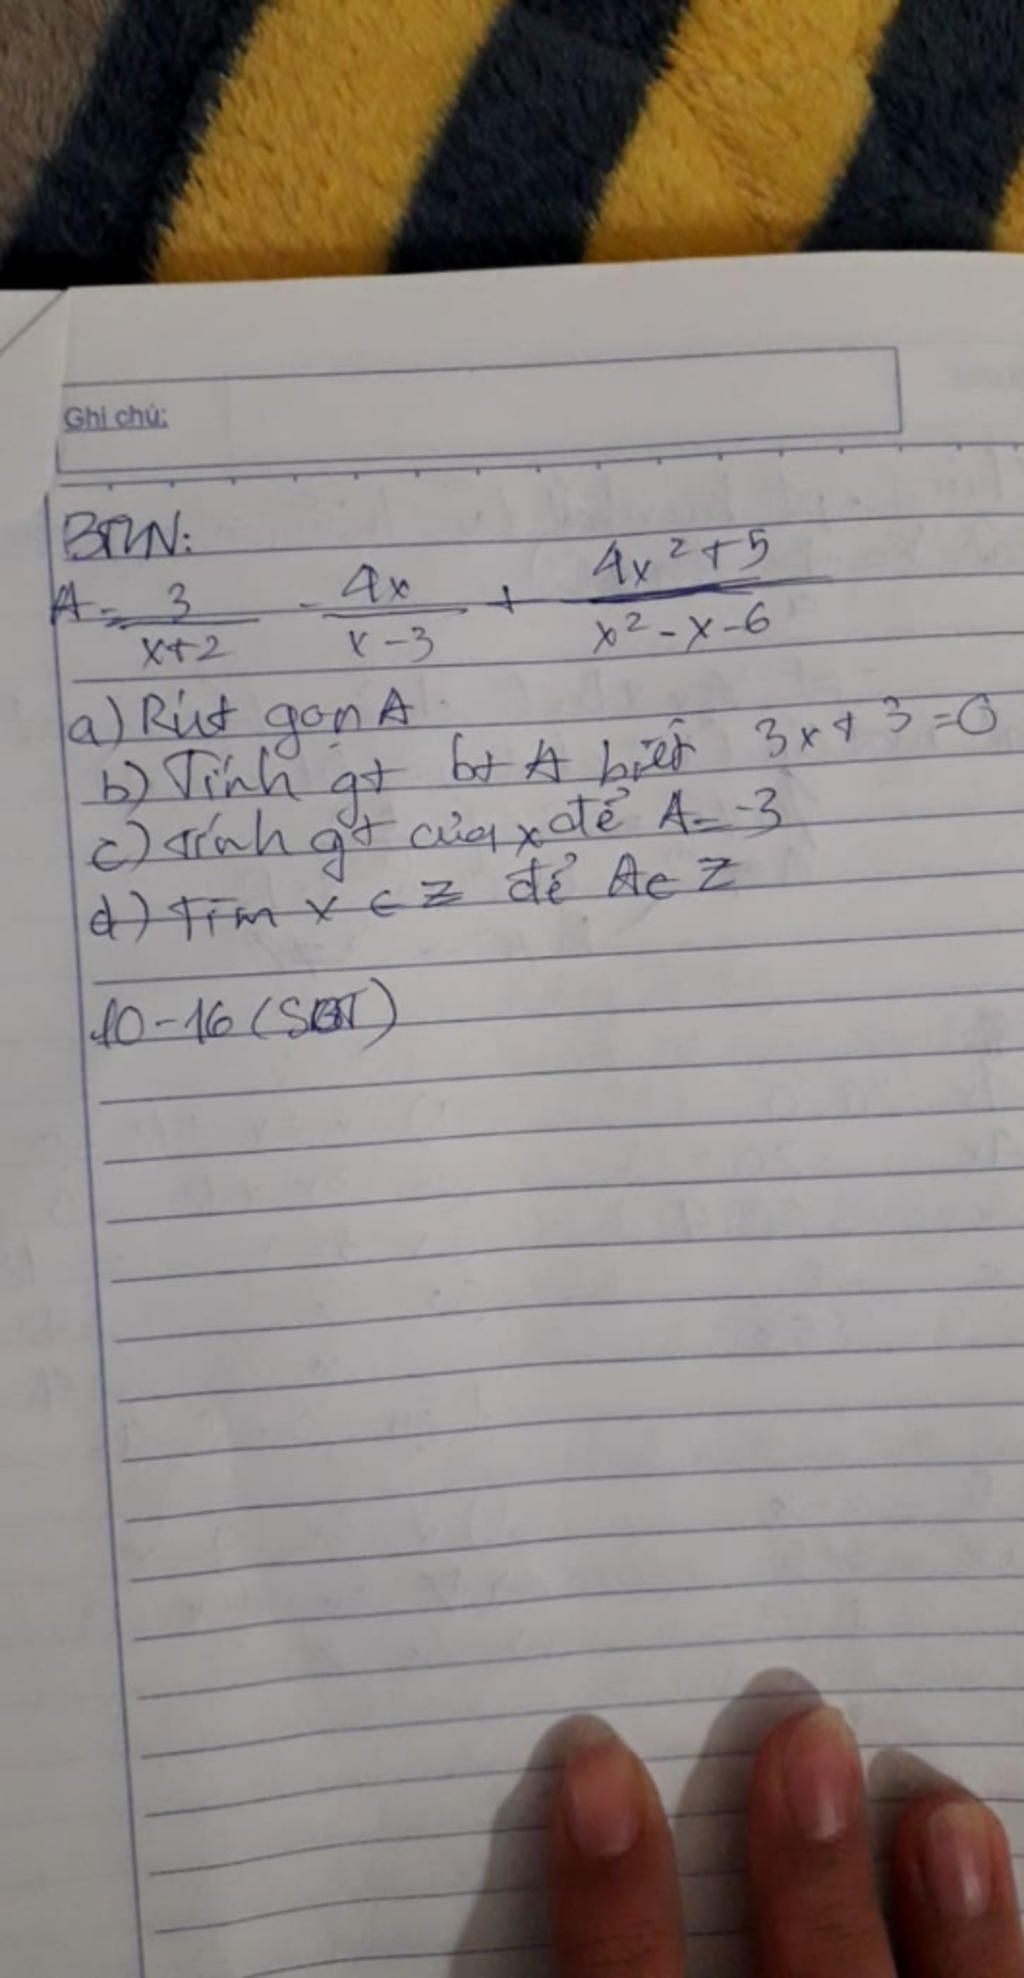 Ghi chú:
BTVN:
A = 3/(x+2) - 4x/(x-3) + (4x²+5)/(x²-x-6)
a) Rút gọn A
b) Tính gt bt A biết 3x+3=0
c) tính gt của x để A=-3
d) tìm x ∈ Z để A∈ Z
10-16 (SBT)